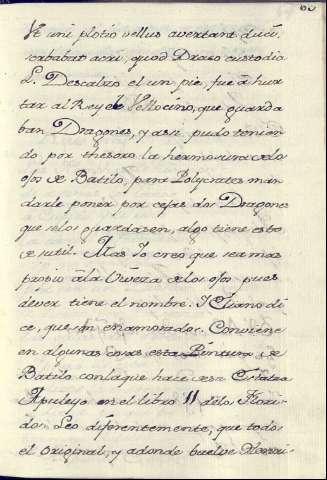 Ut uni plotio vellus avertant ducu.
cubabat acri, quod Draco custodia
L. Descalzo el un pie, fue á hur
tar al Rey el Vellocino, que guarda
ban Dragones, y assi pudo tenien
do por thesoro la hermosura de los
ojos de Batilo, para Polycrates man
darle poner por cejas dos Dragones
que selos guardasen, algo tiene esto
de sutil. Mas Yo creo que sea mas
propio á la viveza de los ojos pues
de ver tiene el nombre. Y Eliano di
ce, que son enamorados. Conviene
en algunas cosas esta Pintura de
Batilo con la que hace de su Estatua
Apuleyo en el libro 11 de los Flori
dos. Leo diferentemente, que todo
el original, y adonde buelve Henri